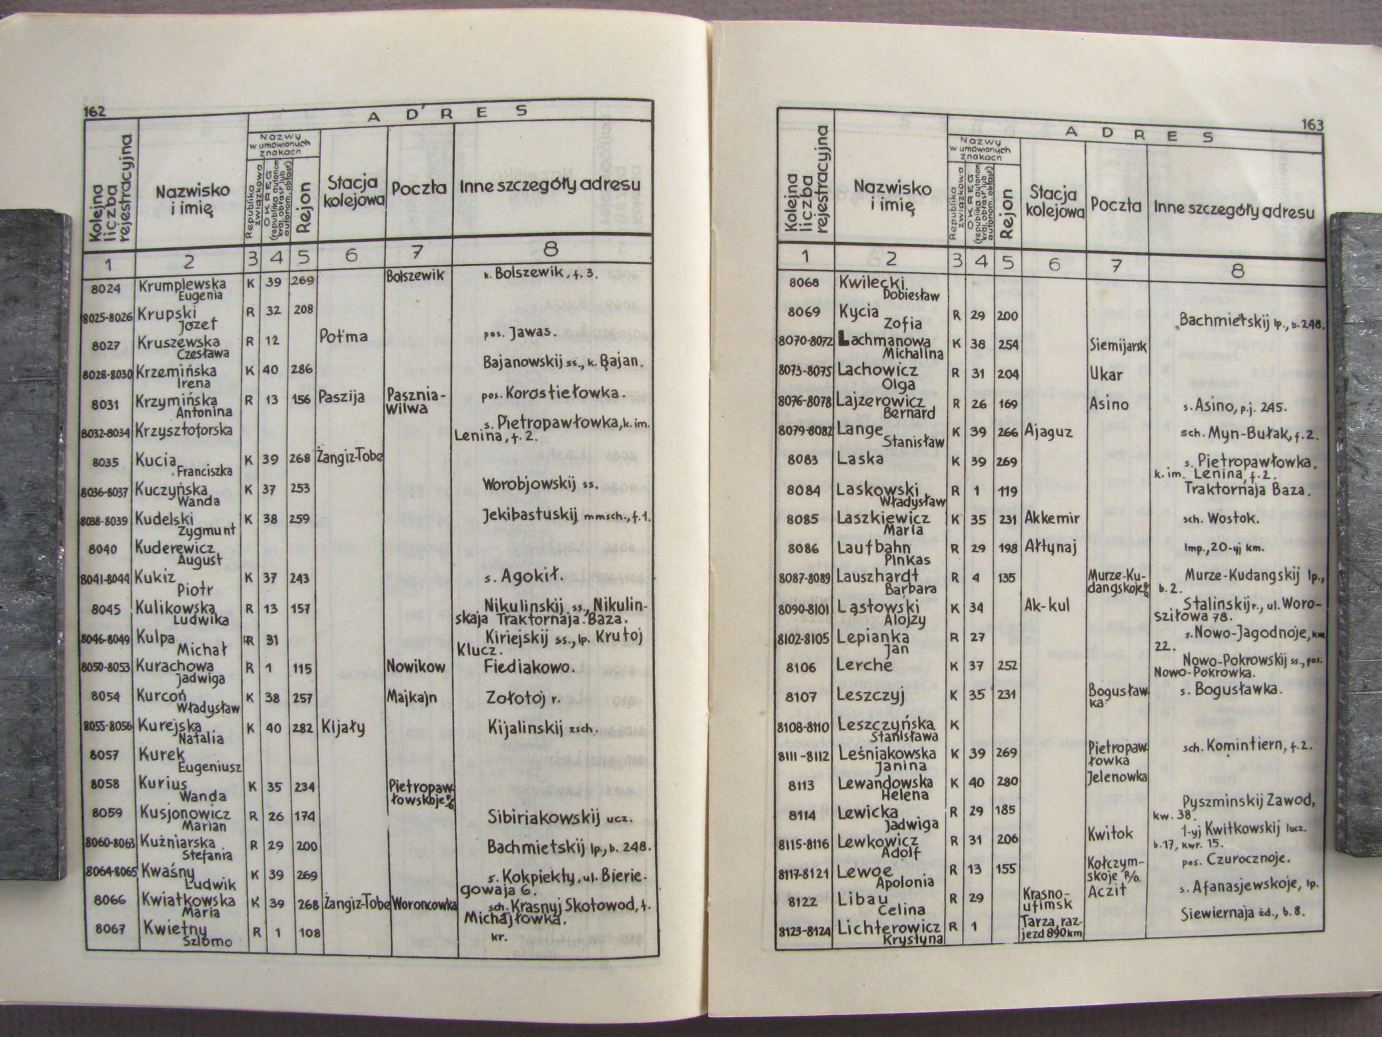 162
A D R E S
Kolejna liczba rejestracyjna
Nazwisko i imię
Nazwy w umówionych znakach
Republika związkowa
OKRĘG (republika autonom. kraj, obłast' lub autonom. obłast')
Rejon
Stacja kolejowa
Poczta
Inne szczegóły adresu
1 2 3 4 5 6 7 8
8024 Krumplewska Eugenia K 39 269 Bolszewik k. Bolszewik, f. 3.
8025-8026 Krupski Józef R 32 208
8027 Kruszewska Czesława R 12 Potma pos. Jawas.
8028-8030 Krzemińska Irena K 40 286 Bajanowskij ss., k. Bajan.
8031 Krzymińska Antonina R 13 156 Paszija Pasznia-Wilwa pos. Korostiełowka.
8032-8034 Krzysztoforska s. Pietropawłowka, k. im. Lenina, f. 2.
8035 Kucia Franciszka K 39 268 Żangiz-Tobe
8036-8037 Kuczyńska Wanda K 37 253 Worobjowskij ss.
8038-8039 Kudelski Zygmunt K 38 259 Jekibastuskij mmsch., f. 1.
8040 Kuderewicz August
8041-8044 Kukiz Piotr K 37 243 s. Agokił.
8045 Kulikowska Ludwika R 13 157 Nikulinskij ss., Nikulinskaja Traktornaja Baza.
8046-8049 Kulpa Michał R 31 Kiriejskij ss., lp. Krutoj Klucz.
8050-8053 Kurachowa Jadwiga R 1 115 Nowikow Fiediakowo.
8054 Kurcoń Władysław K 38 257 Majkajn Zołotoj r.
8055-8056 Kurejska Natalia K 40 282 Kijały Kijalinskij zsch.
8057 Kurek Eugeniusz
8058 Kurius Wanda K 35 234 Pietropawłowskoje
8059 Kusjonowicz Marian R 26 174 Sibiriakowskij ucz.
8060-8063 Kuźniarska Stefania R 29 200 Bachmietskij lp., b. 248.
8064-8065 Kwaśny Ludwik K 39 269 s. Kokpiekty, ul. Bieriegowaja 6.
8066 Kwiatkowska Maria K 39 268 Żangiz-Tobe Woroncowka sch. Krasnyj Skotowod, f. Michajłowka.
8067 Kwietny Szlomo R 1 108 kr.
163
A D R E S
Kolejna liczba rejestracyjna
Nazwisko i imię
Nazwy w umówionych znakach
Republika związkowa
OKRĘG (republika autonom. kraj, obłast' lub autonom. obłast')
Rejon
Stacja kolejowa
Poczta
Inne szczegóły adresu
1 2 3 4 5 6 7 8
8068 Kwilecki Dobiesław
8069 Kycia Zofia R 29 200 Bachmietskij lp., b. 248.
8070-8072 Lachmanowa Michalina K 38 254 Siemijarsk
8073-8075 Lachowicz Olga R 31 204 Ukar
8076-8078 Lajzerowicz Bernard R 26 169 Asino s. Asino, p.j. 245.
8079-8082 Lange Stanisław K 39 266 Ajaguz sch. Myn-Bułak, f. 2.
8083 Laska K 39 269 s. Pietropawłowka, k. im. Lenina, f. 2.
8084 Laskowski Władysław R 1 119 Traktornaja Baza.
8085 Laszkiewicz Maria K 35 231 Akkemir sch. Wostok.
8086 Laufbahn Pinkas R 29 198 Ałtynaj lmp., 20-yj km.
8087-8089 Lauszhardt Barbara R 4 135 Murze-Kudangskoje Murze-Kudangskij lp., b. 2.
8090-8101 Ląstowski Alojzy K 34 Ak-kul Stalinskij r., ul. Worosziłowa 78.
8102-8105 Lepianka Jan R 27 s. Nowo-Jagodnoje, kw. 22.
8106 Lerche K 37 252 Nowo-Pokrowskij ss., pos. Nowo-Pokrowka.
8107 Leszczyj K 35 231 Bogusławka s. Bogusławka.
8108-8110 Leszczyńska Stanisława K
8111-8112 Leśniakowska Janina K 39 269 Pietropawłowka sch. Komintiern, f. 2.
8113 Lewandowska Helena K 40 280 Jelenowka
8114 Lewicka Jadwiga R 29 185 Pyszminskij Zawod, kw. 38.
8115-8116 Lewkowicz Adolf R 31 206 Kwitok 1-yj Kwitkowskij lucz. b. 17, kwr. 15.
8117-8121 Lewoc Apolonia R 13 155 Kołczymskoje P/o. pos. Czurocznoje.
8122 Libau Celina R 29 Krasnoufimsk Aczit s. Afanasjewskoje, lp.
8123-8124 Lichterowicz Krystyna R 1 Tarza, razjezd 890 km Siewiernaja żd., b. 8.